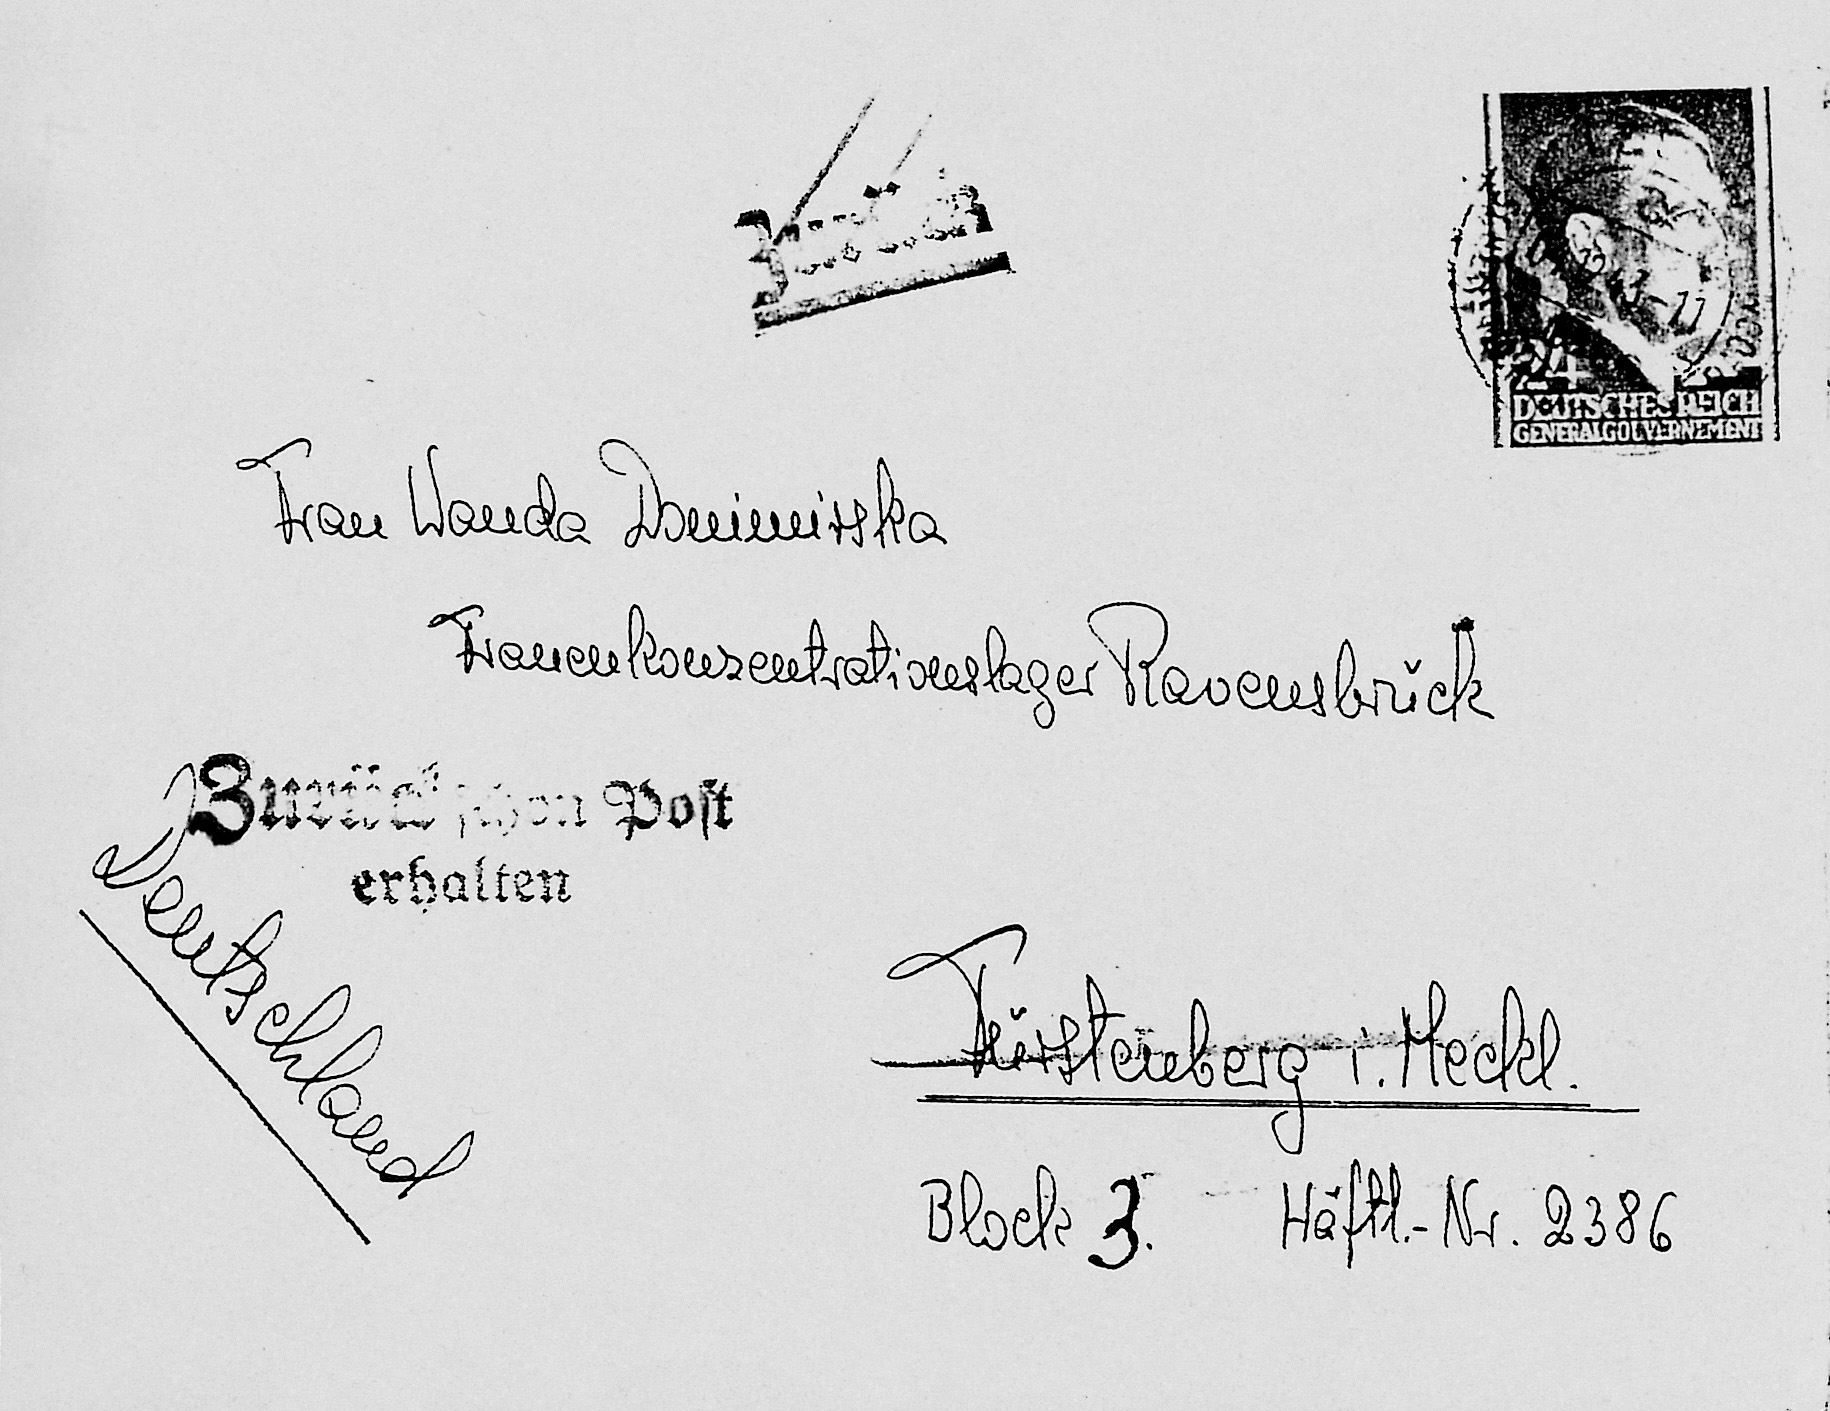 Zurück
24
DEUTSCHES REICH
GENERALGOUVERNEMENT
Frau Wanda Donimirska
Frauenkonzentrationslager Ravensbrück
Zurück schon Post
erhalten
Deutschland
Fürstenberg i. Meckl.
Block 3. Häftl.-Nr. 2386